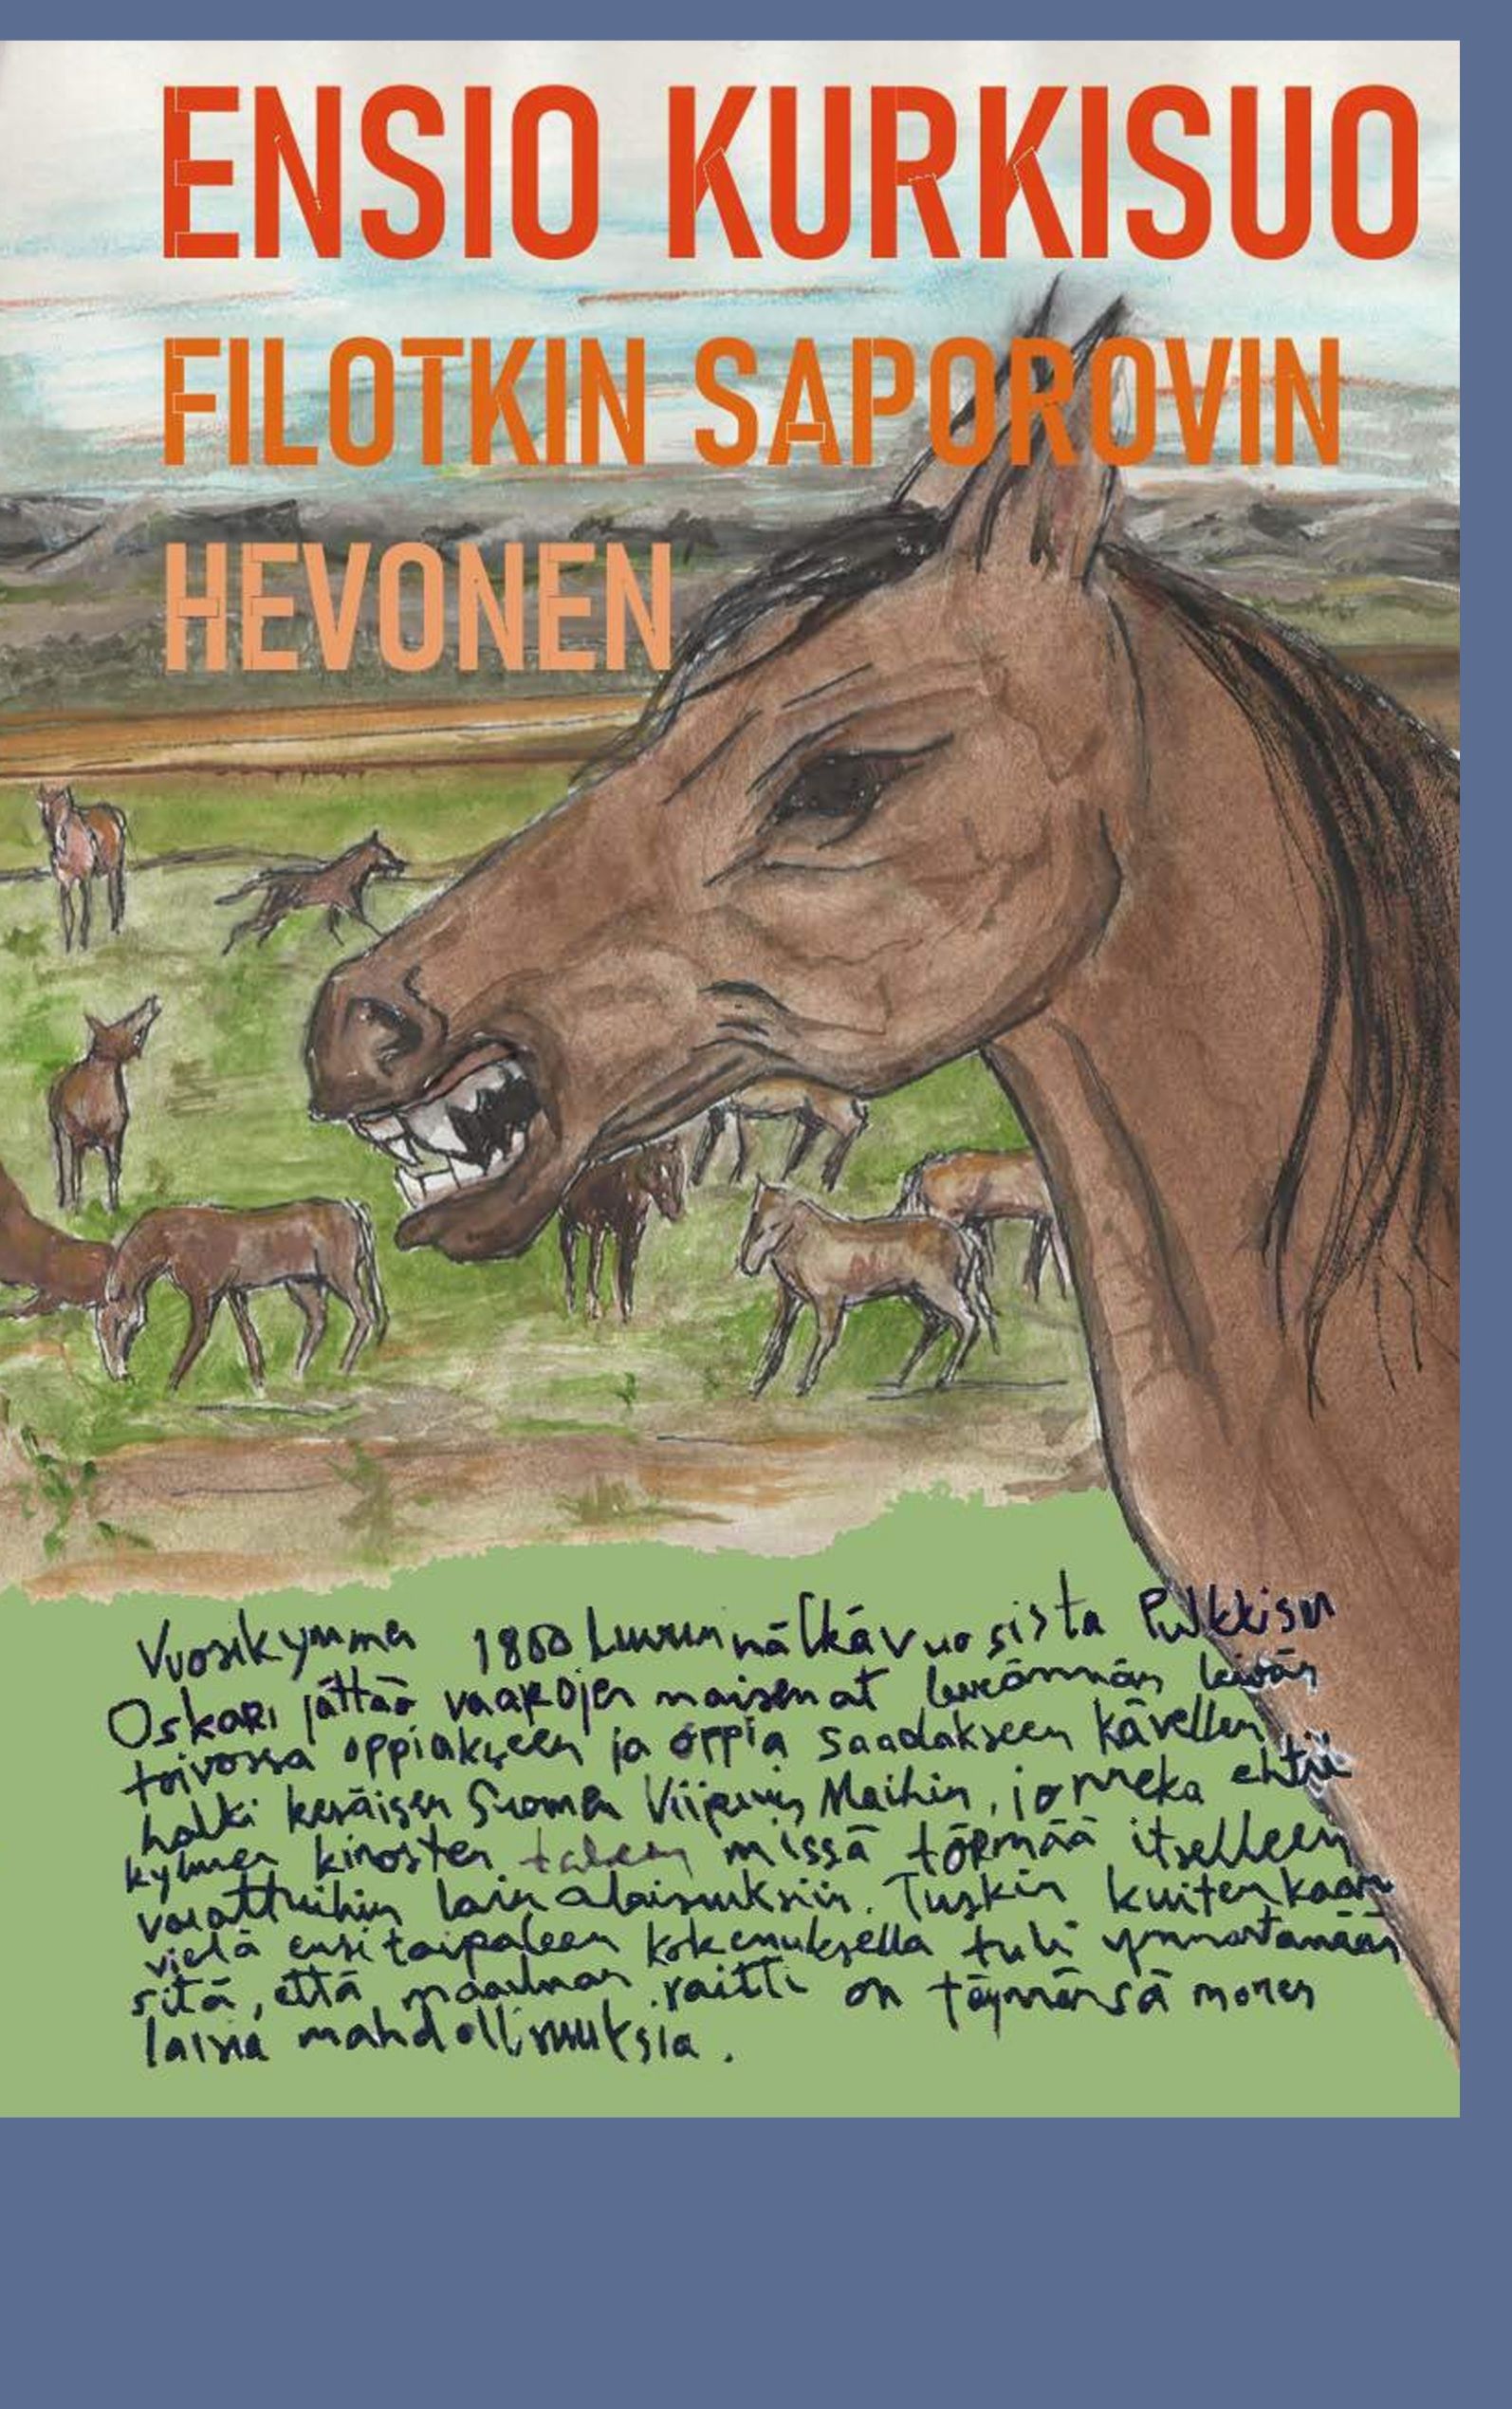 ENSIO KURKISUO
FILOTKIN SAPOROVIN
HEVONEN
Vuosikymmen 1860 luvun nälkävuosista Pulkkisen
Oskari jättää vaarojen maisemat leveämmän leivän
toivossa oppiakseen ja oppia saadakseen kävellen
halki kesäisen Suomen Viipurin Maihin, jonneka ehtii
kylmen kinosten missä törmää itselleen
varattuihin lainalaisuuksiin. Tuskin kuitenkaan
vielä ensi taipaleen kokemuksella tuli ymmärtämään
sitä, että maailman raitti on täynnänsä monen
laisia mahdollisuuksia.